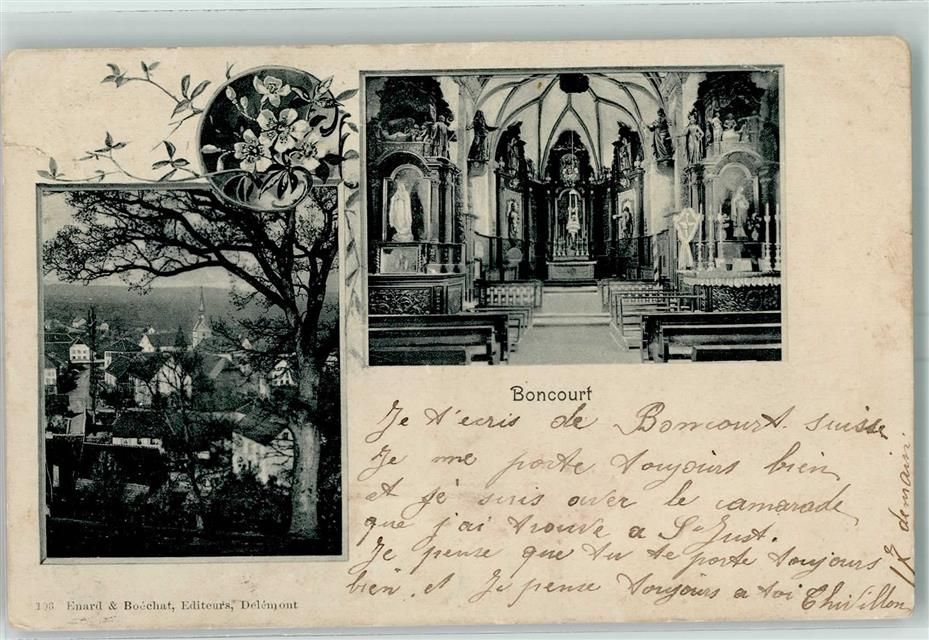 Boncourt
Je t'ecris de Boncourt. suisse
Je me porte toujours bien
et je suis aver le camarade
que j'ai trouve a St Just.
Je pense que tu te porte toujours
bien. et Je pense toujours a toi
demain
103 Enard & Boéchat, Editeurs, Delémont